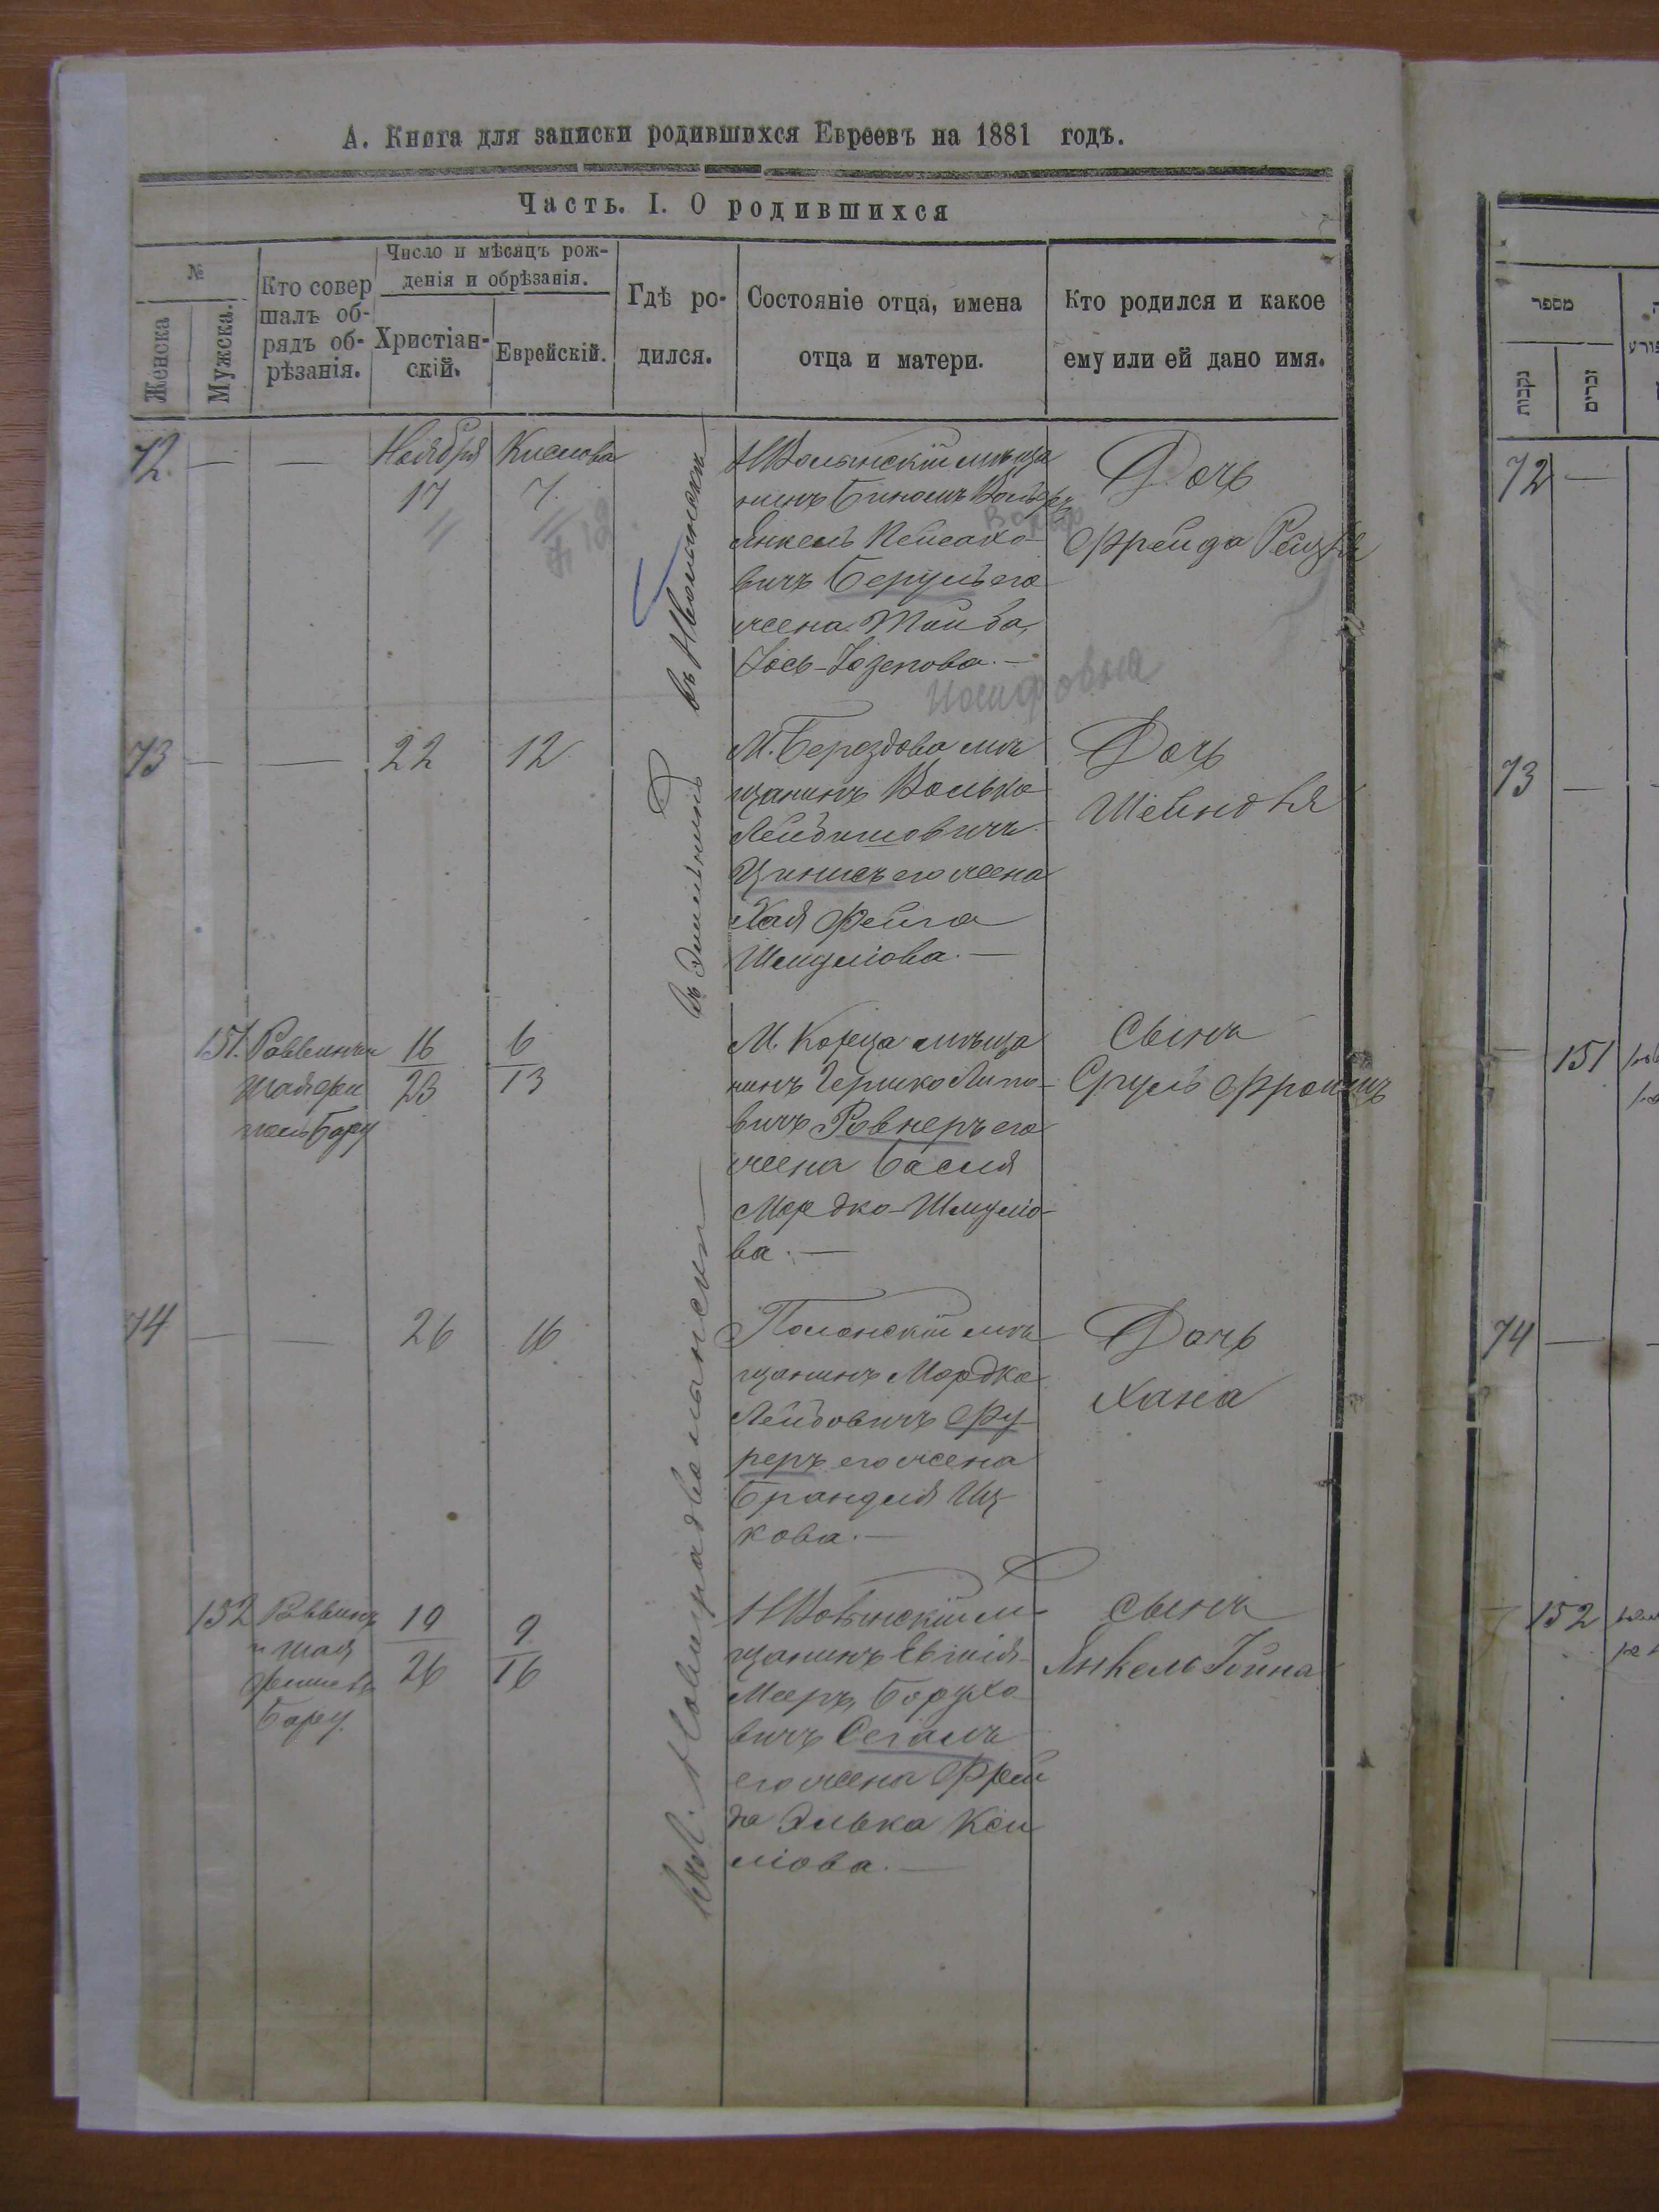 А. Книга для записки родившихся Евреевъ на 1881 годъ.
Часть. I. О родившихся
№
Женска
Мужска.
Кто совер
шалъ об-
рядъ об-
рѣзанія.
Число и мѣсяцъ рож-
денія и обрѣзанія.
Христіан-
скій.
Еврейскій.
Гдѣ ро-
дился.
Состояніе отца, имена
отца и матери.
Кто родился и какое
ему или ей дано имя.
72. — —
Ноября
17
Кислова
7.
въ НВолынскѣ
НВолынскій мѣща
нинъ Биномъ Вольфъ
Вольф
Янкель Пейсахо-
вичъ Беруль его
жена Тойба,
Іось-Іозепова. —
Иосифовна
Дочь
Фрейда
73 — —
22
12
М. Берездова мѣ
щанинъ Волько
Лейбишовичъ
его жена
Хая Фейга
Шмулiова. —
Дочь
Шейндля
151.
Раввинъ и
Шая Фи
Бару
16
23
6
13
М. Корца мѣща
нинъ Гершко Липо-
вичъ Ровнеръ его
жена Басия
Мордко-Шмуліо-
ва. —
Сынъ
Сруль Фроимъ
74 — —
26
16
Полонскій мѣ
щанинъ Мордко
Лейбовичъ Фу-
реръ его жена
Брандля Иц
кова. —
Дочь
Хана
152
Раввинъ
и Шая
Бару.
19
26
9
16
НВолынскій м
щанинъ
Мееръ, Борухо
вичъ Сегалъ
его жена Фрей
да Элька
ліова. —
Сынъ
Янкель Іойна
מספר
נקבות
זכרים
72 —
73 —
151
74 —
152